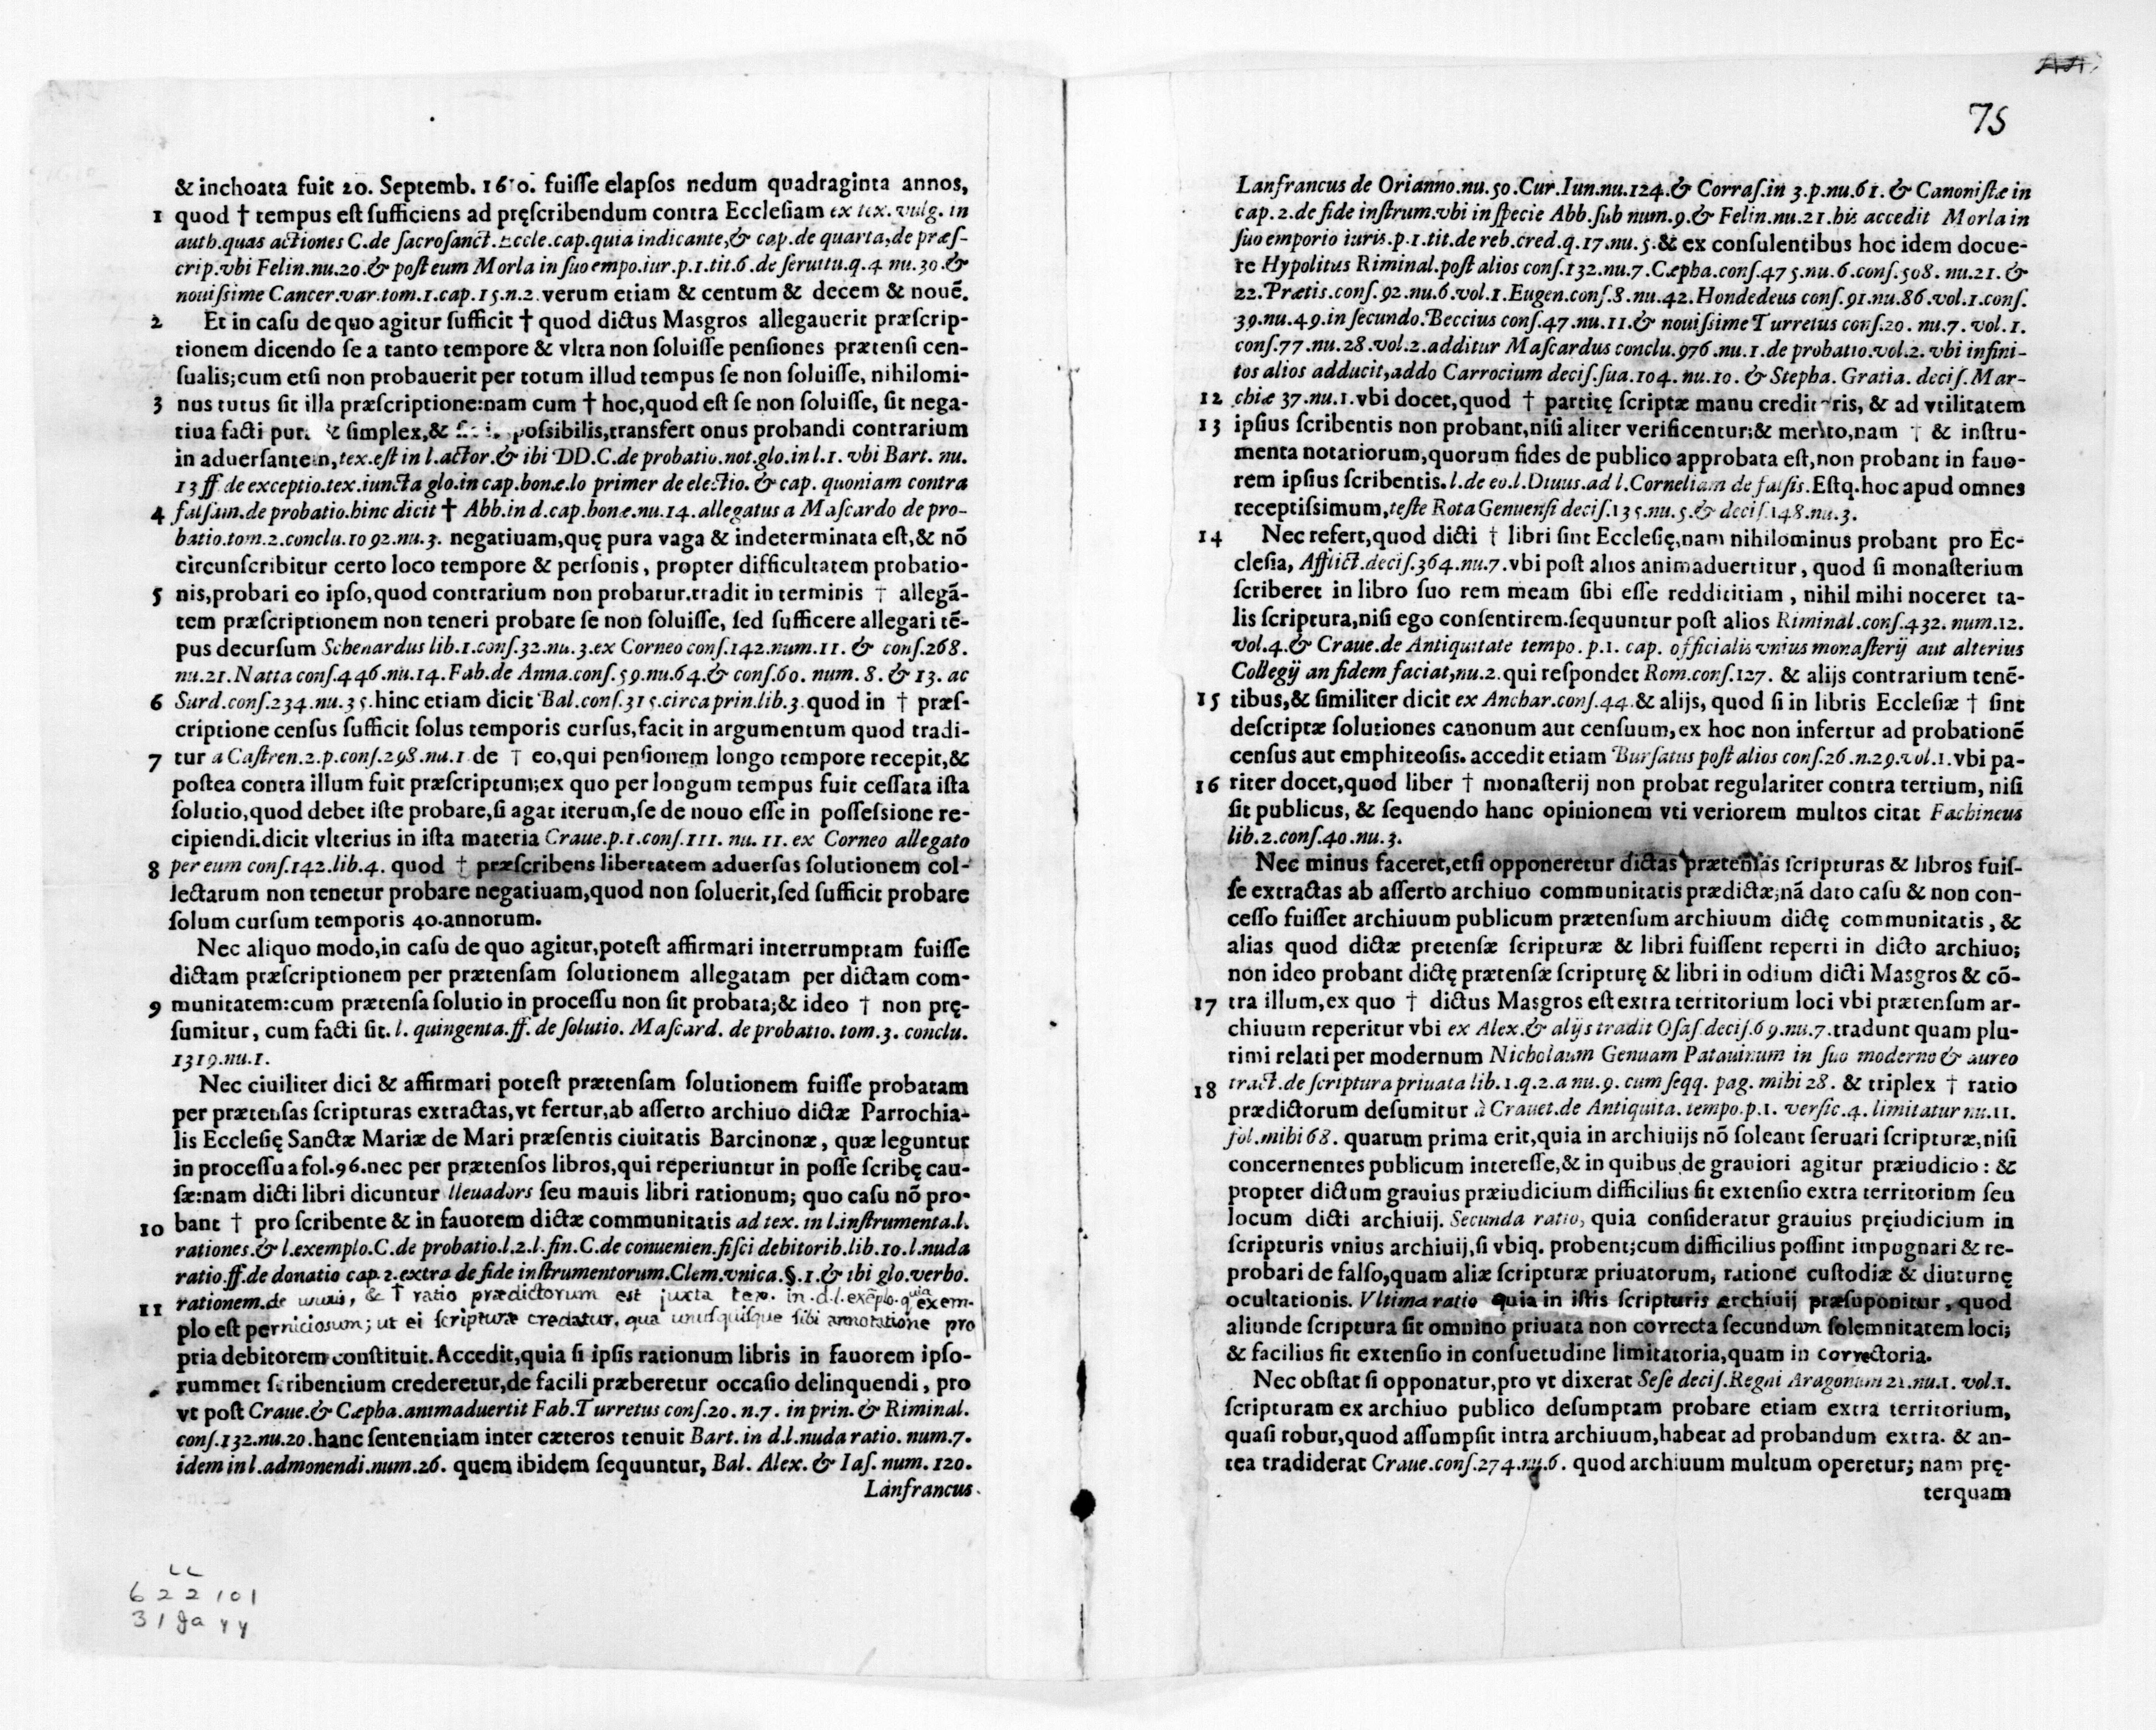 & inchoata fuit 20. Septemb. fuiſſe elapſos nedum quadraginta annos,
1 quod † tempus eſt ſufficiens ad pręſcribendum contra Eccleſiam ex tex. vulg. in
auth.quas actiones C.de ſacroſanct.Eccle.cap.quia indicante,& cap.de quarta,de præſ-
crip.vbi Felin.nu.20.& poſt eum Morla in ſuo empo.iur.p.1.tit.6.de ſeruitu.q.4 nu.30.&
nouiſsime Cancer.var.tom.1.cap.15.n.2. verum etiam & centum & decem & nouē.
2 Et in caſu de quo agitur ſufficit † quod dictus Maſgros allegauerit præſcrip-
tionem dicendo ſe a tanto tempore & vltra non ſoluiſſe penſiones prætenſi cen-
ſualis;cum etſi non probauerit per totum illud tempus ſe non ſoluiſſe, nihilomi-
3 nus tutus ſit illa præſcriptione:nam cum † hoc,quod eſt ſe non ſoluiſſe, ſit nega-
tiua facti pura & ſimplex,& poſsibilis,transfert onus probandi contrarium
in aduerſantem,tex.eſt in l.actor.& ibi DD.C.de probatio.not.glo.in l.1. vbi Bart. nu.
13 ff de exceptio.tex.iuncta glo.in cap.bonæ.lo primer de electio. & cap. quoniam contra
4 falſam.de probatio.hinc dicit † Abb.in d.cap.bonæ.nu.14.allegatus a Maſcardo de pro-
batio.tom.2.conclu.1092.nu.3. negatiuam,quę pura vaga & indeterminata eſt,& nō
circunſcribitur certo loco tempore & perſonis, propter difficultatem probatio-
5 nis,probari eo ipſo,quod contrarium non probatur.tradit in terminis † allegā-
tem præſcriptionem non teneri probare ſe non ſoluiſſe, ſed ſufficere allegari tē-
pus decurſum Schenardus lib.1.conſ.32.nu.3.ex Corneo conſ.142.num.11. & conſ.268.
nu.21.Natta conſ.446.nu.14.Fab.de Anna.conſ.59.nu.64.& conſ.60. num. 8. & 13. ac
6 Surd.conſ.234.nu.35.hinc etiam dicit Bal.conſ.315.circa prin.lib.3.quod in † præſ-
criptione cenſus ſufficit ſolus temporis curſus,facit in argumentum quod tradi-
7 tur a Caſtren.2.p.conſ.298.nu.1 de † eo,qui penſionem longo tempore recepit,&
poſtea contra illum fuit præſcriptum;ex quo per longum tempus fuit ceſſata iſta
ſolutio,quod debet iſte probare,ſi agat iterum,ſe de nouo eſſe in poſſeſsione re-
cipiendi.dicit vlterius in iſta materia Craue.p.1.conſ.111. nu. 11. ex Corneo allegato
8 per eum conſ.142.lib.4. quod † præſcribens libertatem aduerſus ſolutionem col-
lectarum non tenetur probare negatiuam,quod non ſoluerit,ſed ſufficit probare
ſolum curſum temporis 40.annorum.
Nec aliquo modo,in caſu de quo agitur,poteſt affirmari interrumptam fuiſſe
dictam præſcriptionem per prætenſam ſolutionem allegatam per dictam com-
9 munitatem:cum prætenſa ſolutio in proceſſu non ſit probata;& ideo † non prę-
ſumitur, cum facti ſit. l. quingenta.ff. de ſolutio. Maſcard. de probatio. tom.3. conclu.
1319.nu.1.
Nec ciuiliter dici & affirmari poteſt prætenſam ſolutionem fuiſſe probatam
per prætenſas ſcripturas extractas,vt fertur,ab aſſerto archiuo dictæ Parrochia-
lis Eccleſię Sanctæ Mariæ de Mari præſentis ciuitatis Barcinonæ, quæ leguntur
in proceſſu a fol.96.nec per prætenſos libros,qui reperiuntur in poſſe ſcribę cau-
ſæ:nam dicti libri dicuntur lleuadors ſeu mauis libri rationum; quo caſu nō pro-
10 bant † pro ſcribente & in fauorem dictæ communitatis ad tex. in l.inſtrumenta.l.
rationes.& l.exemplo.C.de probatio.l.2.l.fin.C.de conuenien.fiſci debitorib.lib.10.l.nuda
ratio.ff.de donatio cap.2.extra de fide inſtrumentorum.Clem.vnica.§.1.& ibi glo.verbo.
11 rationem.de uſuris, & † ratio prædictorum est juxta tex. in.d.l.exēplo.quia exem-
plo eſt perniciosum; ut ei scripturæ credatur. qua unusquisque sibi annotatione pro
pria debitorem conſtituit.Accedit,quia ſi ipſis rationum libris in fauorem ipſo-
rummet ſcribentium crederetur,de facili præberetur occaſio delinquendi, pro
vt poſt Craue.& Cæpha.animaduertit Fab.Turretus conſ.20. n.7. in prin. & Riminal.
conſ.132.nu.20.hanc ſententiam inter cæteros tenuit Bart. in d.l.nuda ratio. num.7.
idem in l.admonendi.num.26. quem ibidem ſequuntur, Bal. Alex. & Iaſ. num. 120.
Lanfrancus
6 2 2 101
75
Lanfrancus de Orianno.nu.50.Cur.Iun.nu.124.& Corraſ.in 3.p.nu.61. & Canoniſtæ in
cap.2.de fide inſtrum.vbi in ſpecie Abb.ſub num.9.& Felin.nu.21.his accedit Morla in
ſuo emporio iuris.p.1.tit.de reb.cred.q.17.nu.5.& ex conſulentibus hoc idem docue-
re Hypolitus Riminal.poſt alios conſ.132.nu.7.Cæpha.conſ.475.nu.6.conſ.508. nu.21. &
22.Prætis.conſ.92.nu.6.vol.1.Eugen.conſ.8.nu.42.Hondedeus conſ.91.nu.86.vol.1.conſ.
39.nu.49.in ſecundo.Beccius conſ.47.nu.11.& nouiſsime Turretus conſ.20. nu.7. vol.1.
conſ.77.nu.28.vol.2.additur Maſcardus conclu.976.nu.1.de probatio.vol.2. vbi infini-
tos alios adducit,addo Carrocium deciſ.ſua.104. nu.10. & Stepha. Gratia. deciſ. Mar-
12 chiæ 37.nu.1.vbi docet,quod † partitę ſcriptæ manu creditoris, & ad vtilitatem
13 ipſius ſcribentis non probant,niſi aliter verificentur;& merito,nam † & inſtru-
menta notariorum,quorum fides de publico approbata eſt,non probant in fauo-
rem ipſius ſcribentis.l.de eo.l.Diuus.ad l.Corneliam de falſis.Eſtq.hoc apud omnes
receptiſsimum,teſte Rota Genuenſi deciſ.135.nu.5.& deciſ.148.nu.3.
14 Nec refert,quod dicti † libri ſint Eccleſię,nam nihilominus probant pro Ec-
cleſia, Afflict.deciſ.364.nu.7.vbi poſt alios animaduertitur, quod ſi monaſterium
ſcriberet in libro ſuo rem meam ſibi eſſe reddititiam, nihil mihi noceret ta-
lis ſcriptura,niſi ego conſentirem.ſequuntur poſt alios Riminal.conſ.432. num.12.
vol.4.& Craue.de Antiquitate tempo. p.1. cap. officialis vnius monaſterij aut alterius
Collegij an fidem faciat,nu.2. qui reſpondet Rom.conſ.127. & alijs contrarium tenē-
15 tibus,& ſimiliter dicit ex Anchar.conſ.44.& alijs, quod ſi in libris Eccleſiæ † ſint
deſcriptæ ſolutiones canonum aut cenſuum,ex hoc non infertur ad probationē
cenſus aut emphiteoſis. accedit etiam Burſatus poſt alios conſ.26.n.29.vol.1.vbi pa-
16 riter docet,quod liber † monaſterij non probat regulariter contra tertium, niſi
ſit publicus, & ſequendo hanc opinionem vti veriorem multos citat Fachineus
lib.2.conſ.40.nu.3.
Nec minus faceret,etſi opponeretur dictas prætenſas ſcripturas & libros fuiſ-
ſe extractas ab aſſerto archiuo communitatis prædictæ;nā dato caſu & non con-
ceſſo fuiſſet archiuum publicum prætenſum archiuum dictę communitatis, &
alias quod dictæ pretenſæ ſcripturæ & libri fuiſſent reperti in dicto archiuo;
non ideo probant dictę prætenſæ ſcripturę & libri in odium dicti Maſgros & cō-
17 tra illum,ex quo † dictus Maſgros eſt extra territorium loci vbi prætenſum ar-
chiuum reperitur vbi ex Alex.& alijs tradit Oſaſ.deciſ.69.nu.7.tradunt quam plu-
rimi relati per modernum Nicholaum Genuam Patauinum in ſuo moderno & aureo
18 tract.de ſcriptura priuata lib.1.q.2.a nu.9. cum ſeqq. pag. mihi 28. & triplex † ratio
prædictorum deſumitur à Crauet.de Antiquita. tempo.p.1. verſic.4. limitatur nu.11.
fol.mihi 68. quarum prima erit,quia in archiuijs nō ſoleant ſeruari ſcripturæ,niſi
concernentes publicum intereſſe,& in quibus de grauiori agitur præiudicio: &
propter dictum grauius præiudicium difficilius fit extenſio extra territorium ſeu
locum dicti archiuij. Secunda ratio, quia conſideratur grauius pręiudicium in
ſcripturis vnius archiuij,ſi vbiq. probent;cum difficilius poſsint impugnari & re-
probari de falſo,quam aliæ ſcripturæ priuatorum, ratione cuſtodiæ & diuturnę
ocultationis. Vltima ratio quia in iſtis ſcripturis archiuij præſuponitur, quod
aliunde ſcriptura ſit omnino priuata non correcta ſecundum ſolemnitatem loci;
& facilius fit extenſio in conſuetudine limitatoria,quam in correctoria.
Nec obſtat ſi opponatur,pro vt dixerat Seſe deciſ.Regni Aragonum 21.nu.1. vol.1.
ſcripturam ex archiuo publico deſumptam probare etiam extra territorium,
quaſi robur,quod aſſumpſit intra archiuum,habeat ad probandum extra. & an-
tea tradiderat Craue.conſ.274.nu.6. quod archiuum multum operetur; nam prę-
terquam